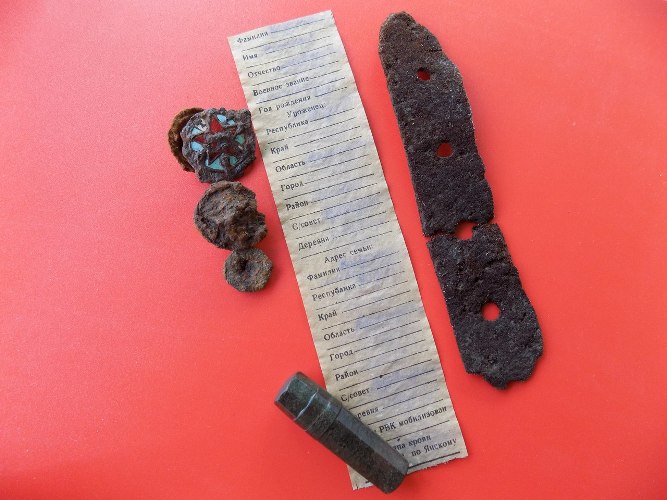 Фамилия
Имя
Отчество
Военное звание
Год рождения
Уроженец:
Республика
Край
Область
Город
Район
С/совет
Деревня
Адрес семьи:
Фамилия
Республика
Край
Область
Город
Район
С/совет
РВК мобилизован
крови
по Янскому